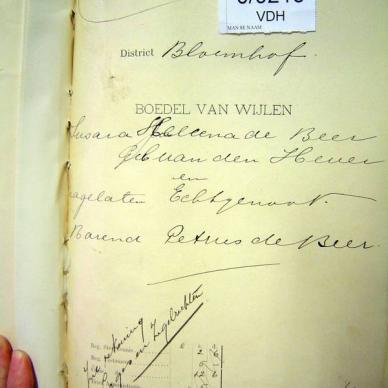 VDH
MAN SE NAAM
District Bloemhof.
BOEDEL VAN WIJLEN
Susara Hellena de Beer
Geb van den Hever
en
nagelaten Echtgenoot.
Barend Petrus de Beer.
rekening
zegelrechten